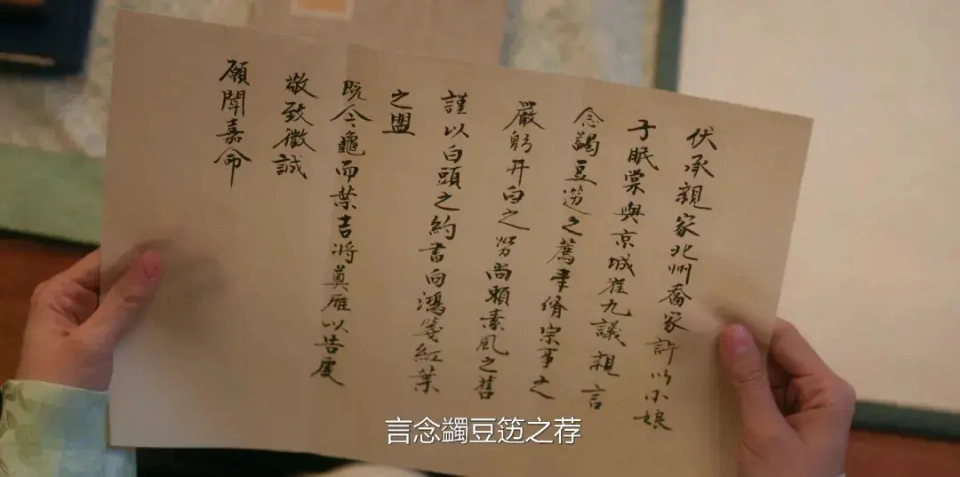 伏承親家北州喬家許以小娘
子眠棠與京城崔九議親言
念蠲豆笾之薦聿脩宗事之
嚴躬井臼之勞尚賴素風之舊
謹以白頭之約書向鴻箋紅葉
之盟
既令龜而葉吉將奠雁以告虔
敬致微誠
願聞嘉命
言念蠲豆笾之荐